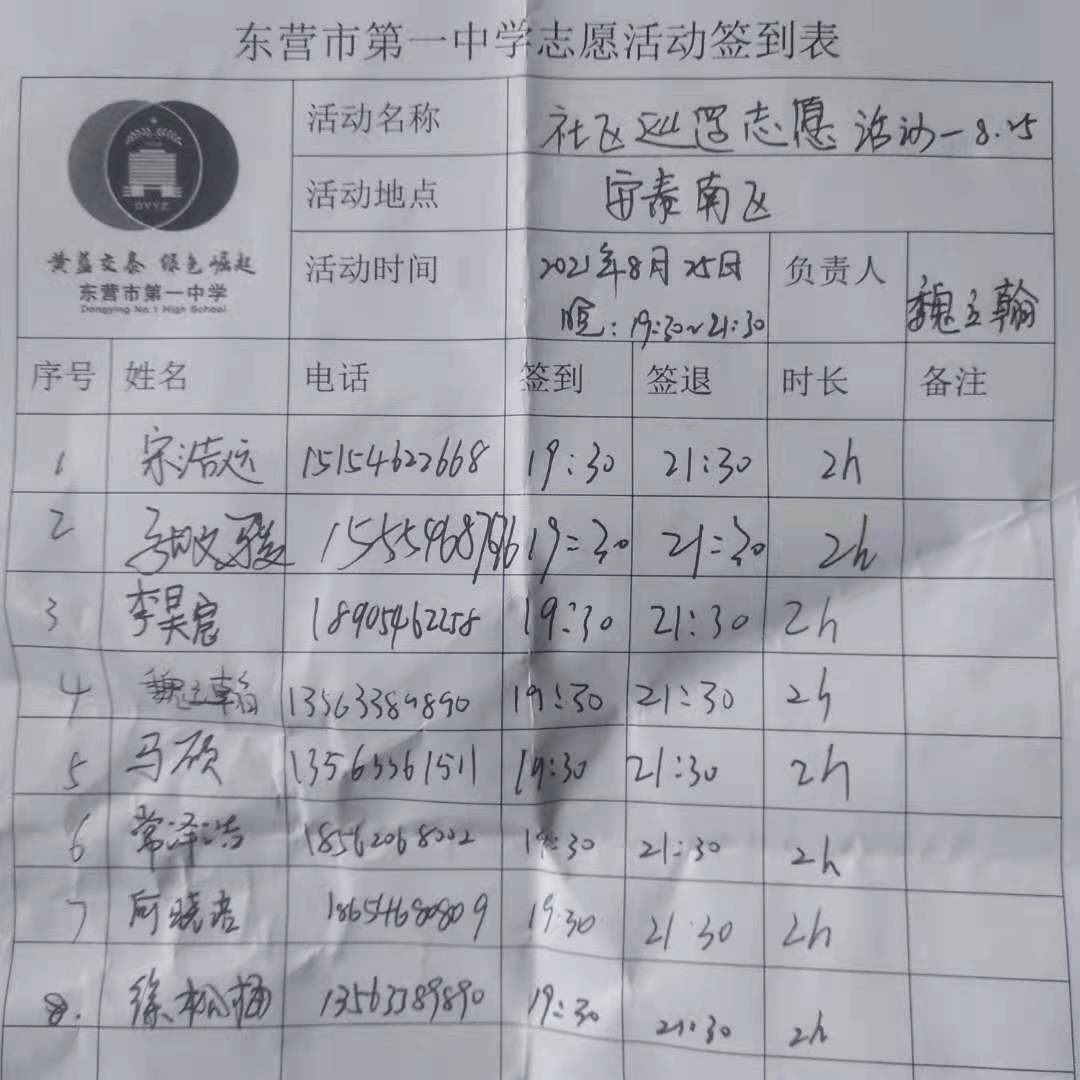 东营市第一中学志愿活动签到表
DYYZ
黄蓝交泰 绿色崛起
东营市第一中学
Dongying No.1 High School
活动名称 社区巡逻志愿活动-8.25
活动地点 安泰南区
活动时间 2021年8月25日 负责人 魏立翰
晚:19:30~21:30
序号 姓名 电话 签到 签退 时长 备注
1 宋浩远 15154622668 19:30 21:30 2h
2 19:30 21:30 2h
3 李昊宸 18905462258 19:30 21:30 2h
4 魏立翰 13563389890 19:30 21:30 2h
5 马硕 13563361511 19:30 21:30 2h
6 常泽浩 18562068002 19:30 21:30 2h
7 18654680809 19:30 21:30 2h
8. 徐松楠 13563389890 19:30 21:30 2h